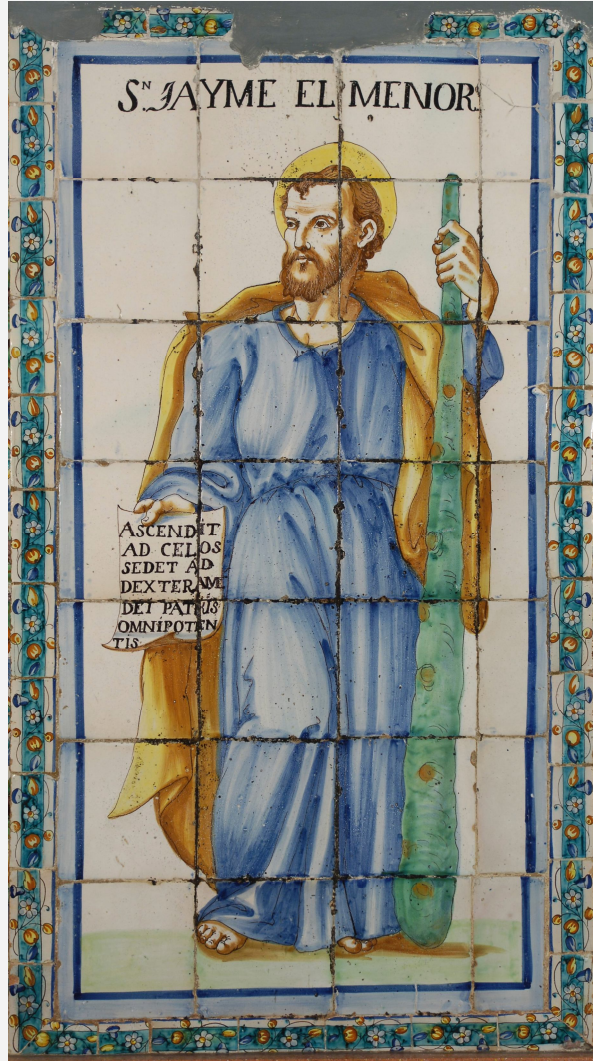 Sᴺ JAYME EL MENOR
ASCENDIT
AD CELOS
SEDET AD
DEXTERAM
DEI PATRIS
OMNIPOTEN
TIS